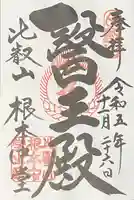 奉拝
令和五年
十一月二十六日
醫王殿
比叡山
根本中堂